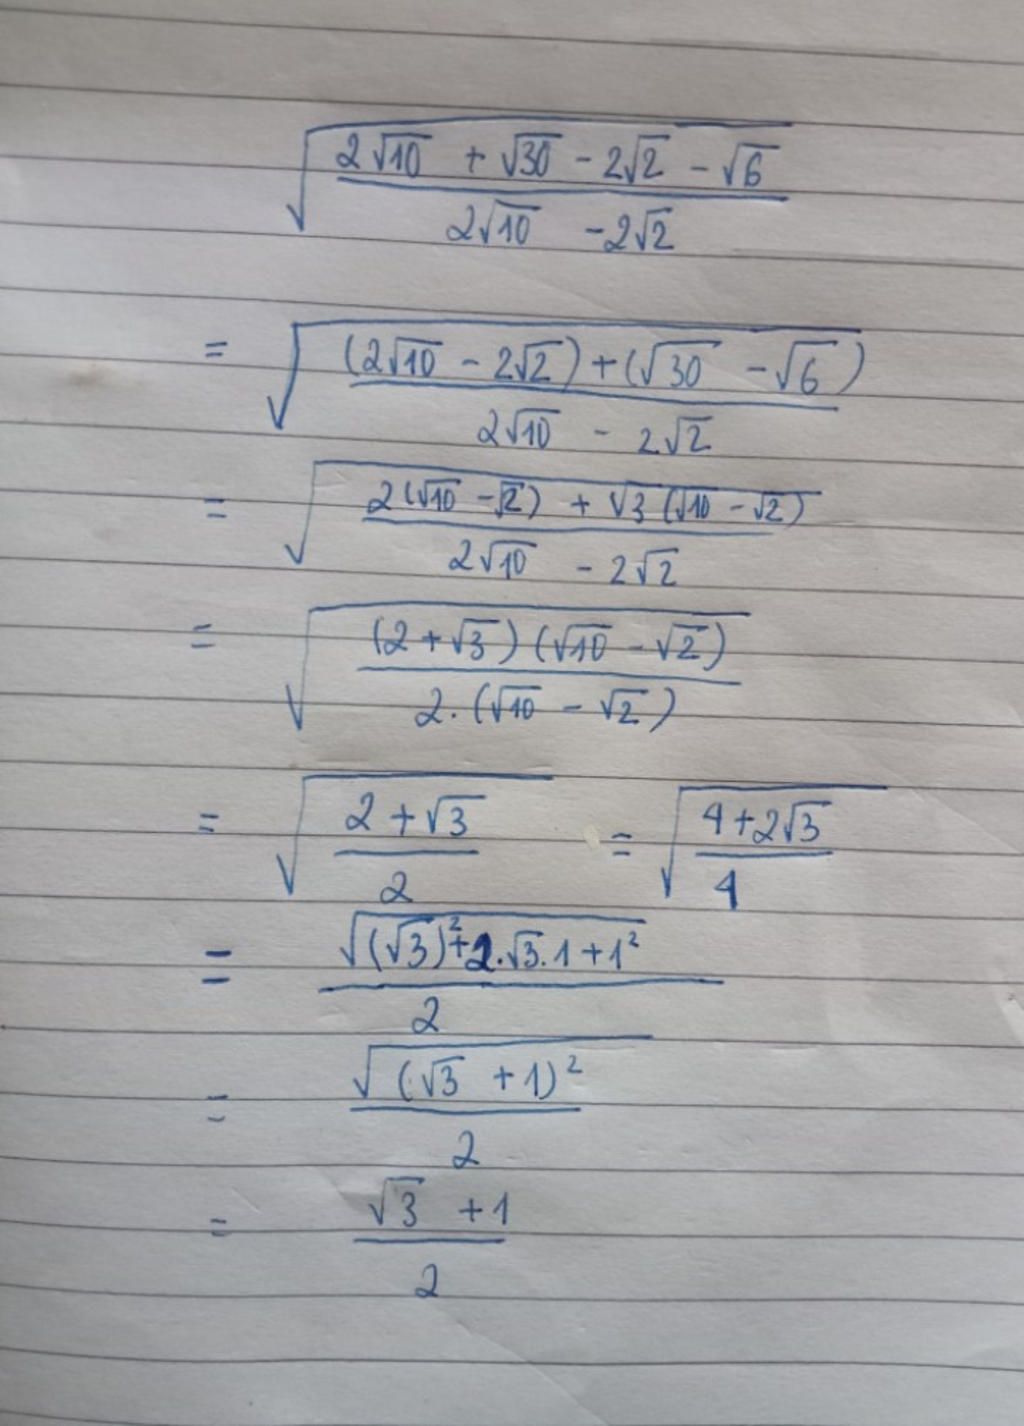 √((2√10 + √30 - 2√2 - √6) / (2√10 - 2√2))
= √(((2√10 - 2√2) + (√30 - √6)) / (2√10 - 2√2))
= √((2(√10 - √2) + √3(√10 - √2)) / (2√10 - 2√2))
= √(((2 + √3)(√10 - √2)) / (2.(√10 - √2)))
= √((2 + √3) / 2) = √((4 + 2√3) / 4)
= √((√3)² + 2.√3.1 + 1²) / 2
= √((√3 + 1)²) / 2
= (√3 + 1) / 2